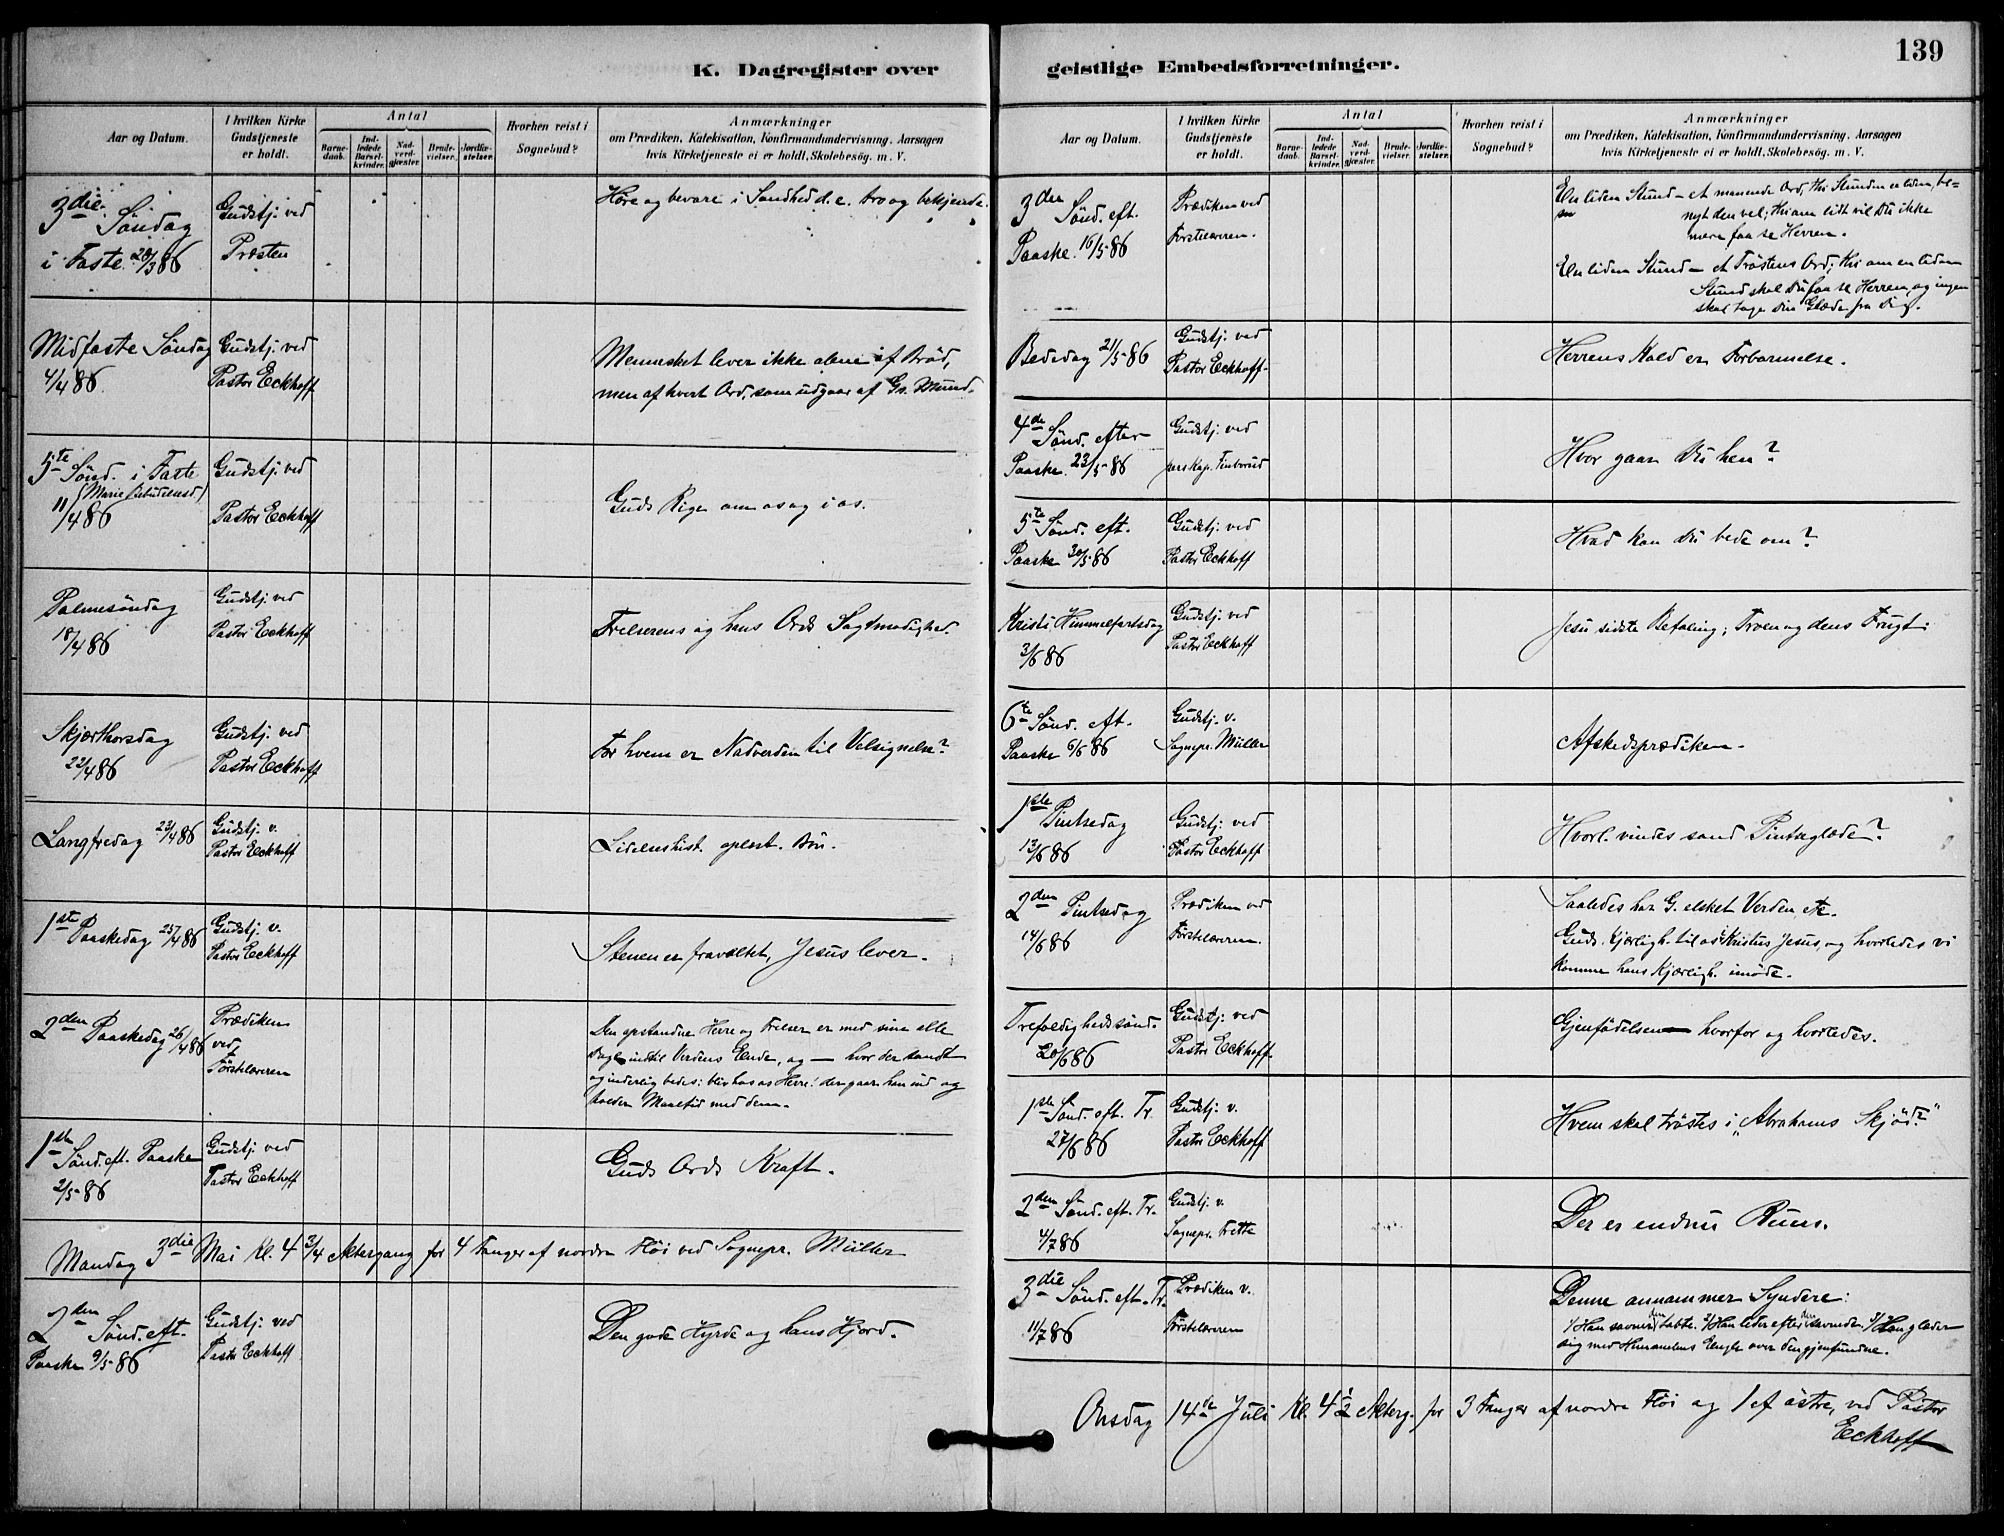 K. Dagregister over
Aar og Datum.
I hvilken Kirke Gudstjeneste er holdt.
Antal
Barnedaab.
Indledede Barselkvinder.
Nadverdgjæster.
Brudevielser.
Jordfæstelser.
Hvorhen reist i Sognebud?
Anmærkninger
om Prædiken, Katekisation, Konfirmandundervisning, Aarsagen
hvis Kirketjeneste ei er holdt, Skolebesøg. m. V.
3die Søndag
i Faste 28/3 86
Gudstj. ved
Præsten
Høre og bevare i Sandhed d.e. tro og bekjende.
Midfaste Søndag
4/4 86.
Gudstj. ved
Pastor Eckhoff
Mennesket lever ikke alene af Brød,
men af hvert Ord, som udgaar af Gs. Mund.
5te Sønd. i Faste
(Marie Bebudelsesd.)
11/4 86
Gudstj. ved
Pastor Eckhoff
Guds Rige om os og i os.
Palmesøndag
18/4 86
Gudstj. ved
Pastor Eckhoff
Frelserens og hans Ords Sagtmodighed.
Skjærthorsdag
22/4 86
Gudstj. ved
Pastor Eckhoff
For hvem er Nadverden til Velsignelse?
Langfredag 23/4 86
Gudstj. v.
Pastor Eckhoff
Lidelseshist. oplæst. Bøn.
1ste Paaskedag 25/4 86
Gudstj. v.
Pastor Eckhoff
Stenen er fravæltet, Jesus lever.
2den Paaskedag 26/4 86
Prædiken
ved
Førstelæreren
Den opstandne Herre og Frelser er med sine alle
Dage indtil Verdens Ende, og — hvor der sandt
og inderlig bedes: bliv hos os Herre! der gaar han ind og
holder Maaltid med dem.
1ste Sønd. eft. Paaske
2/5 86
Gudstj. ved
Pastor Eckhoff
Guds Ords Kraft.
Mandag 3die Mai Kl. 4 3/4 Altergang for 4 Fanger af nordre Fløi ved Sognepr. Müller
2den Sønd. eft.
Paaske 9/5 86
Gudstj. ved
Pastor Eckhoff
Den gode Hyrde og hans Hjord.
geistlige Embedsforretninger.
139
Aar og Datum.
I hvilken Kirke Gudstjeneste er holdt.
Antal
Barnedaab.
Indledede Barselkvinder.
Nadverdgjæster.
Brudevielser.
Jordfæstelser.
Hvorhen reist i Sognebud?
Anmærkninger
om Prædiken, Katekisation, Konfirmandundervisning, Aarsagen
hvis Kirketjeneste ei er holdt, Skolebesøg. m. V.
3den Sønd. eft.
Paaske. 16/5 86
Prædiken ved
Førstelæreren.
En liden Stund — et manende Ord, thi Stunden er liden, be=
nyt den vel; thi om lidt vil Du ikke
mere faa se Herren.
En liden Stund — et Trøstens Ord; thi om en liden
Stund skal Du faa se Herren, og ingen
skal tage din Glæde fra Dig.
Bededag 21/5 86
Gudstj. ved
Pastor Eckhoff
Herrens Kald er Forbarmelse.
4de Sønd. efter
Paaske 23/5 86
Gudstj. ved
pers. Kap.
Hvor gaar Du hen?
5te Sønd. eft.
Paaske 30/5 86
Gudstj. ved
Pastor Eckhoff
Hvad kan Du bede om?
Kristi Himmelfartsdag
3/6 86
Gudstj. ved
Pastor Eckhoff
Jesu sidste Befaling; Troen og dens Frugt.
6te Sønd. eft.
Paaske 6/6 86
Gudstj. v.
Sognepr. Müller
Afskedsprædiken.
1ste Pintsedag
13/6 86
Gudstj. ved
Pastor Eckhoff
Hvorl. vindes sand Pintseglæde?
2den Pintsedag
14/6 86
Prædiken ved
Førstelæreren.
Saaledes har G. elsket Verden etc.
Guds Kjærligh. til os i Kristus Jesus, og hvorledes vi
komme hans Kjærligh. imøde.
Trefoldighedssønd.
20/6 86
Gudstj. ved
Pastor Eckhoff.
Gjenfødelsen — hvorfor og hvorledes.
1ste Sønd. eft. Tr.
27/6 86
Gudstj. v.
Pastor Eckhoff
Hvem skal trøstes i „Abrahams Skjød?"
2den Sønd. eft. Tr.
4/7 86
Gudstj. v.
Sognepr.
Der er endnu Rum.
3die Sønd. eft. Tr.
11/7 86
Prædiken v.
Førstelæreren
Denne annammer Syndere:
1/ Han savner den tabte. 2/ Han leder efter den savnede. 3/ Han glæder
sig med Himmelens Engle over den gjenfundne.
Onsdag 14de Juli Kl. 4 1/2 Alterg. for 3 Fanger af nordre Fløi og 1 af østre, ved Pastor
Eckhoff